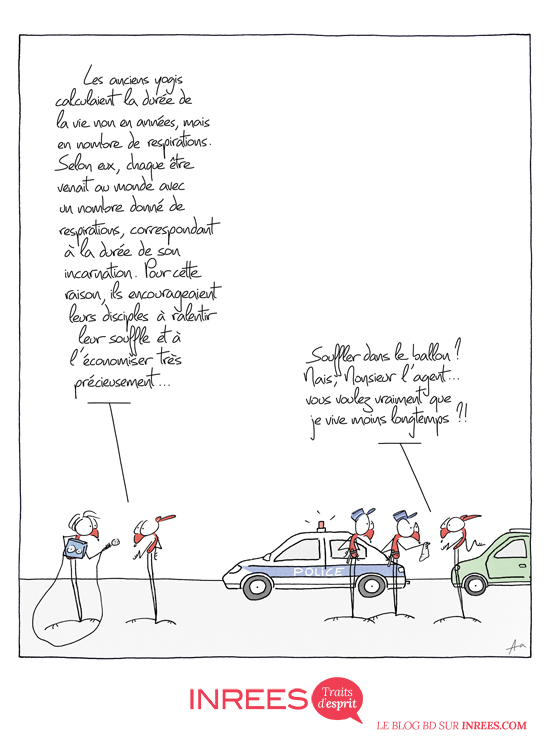 Les anciens yogis
calculaient la durée de
la vie non en années, mais
en nombre de respirations.
Selon eux, chaque être
venait au monde avec
un nombre donné de
respirations, correspondant
à la durée de son
incarnation. Pour cette
raison, ils encourageaient
leurs disciples à ralentir
leur souffle et à
l'économiser très
précieusement...
Souffler dans le ballon ?
Mais, Monsieur l'agent...
vous voulez vraiment que
je vive moins longtemps ?!
POLICE
Aa
INREES
Traits
d'esprit
LE BLOG BD SUR INREES.COM